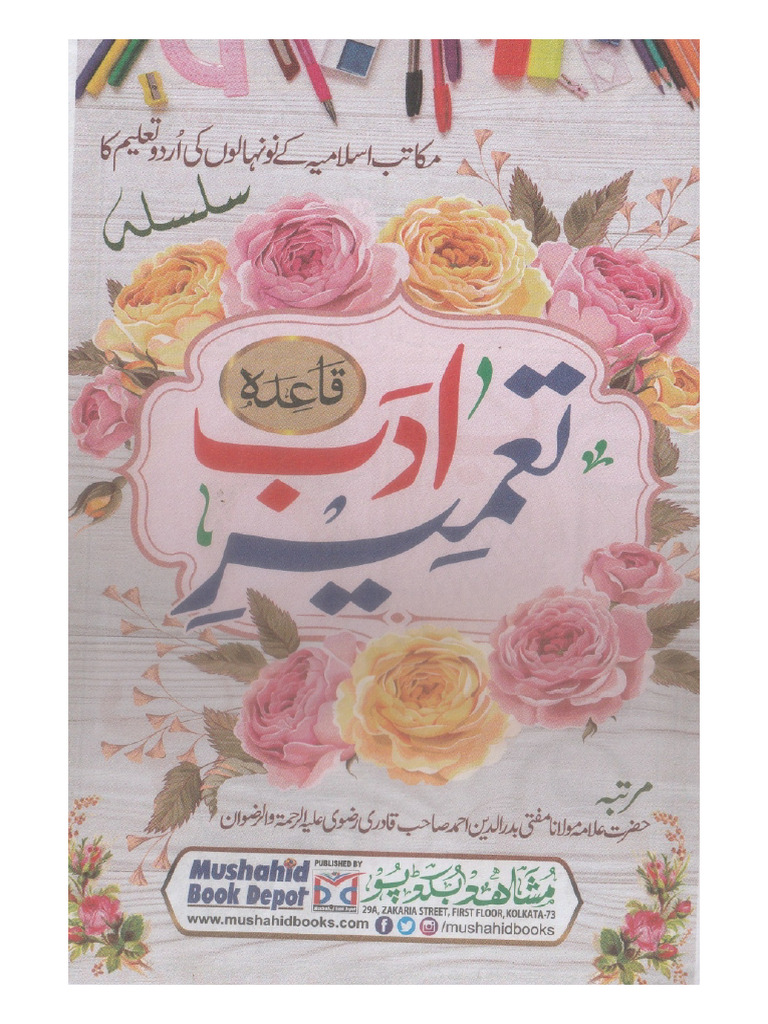 مکاتب اسلامیہ کے نونہالوں کی اُردو تعلیم کا
سلسلہ
قَاعِدَہ
تعمیرِ ادَب
مرتبہ
حضرت علامہ مولانا مفتی بدرالدین احمد صاحب قادری رضوی علیہ الرحمۃ والرضوان
Mushahid Book Depot
PUBLISHED BY
مُشاھد بُکڈپو
29A, ZAKARIA STREET, FIRST FLOOR, KOLKATA-73
www.mushahidbooks.com /mushahidbooks